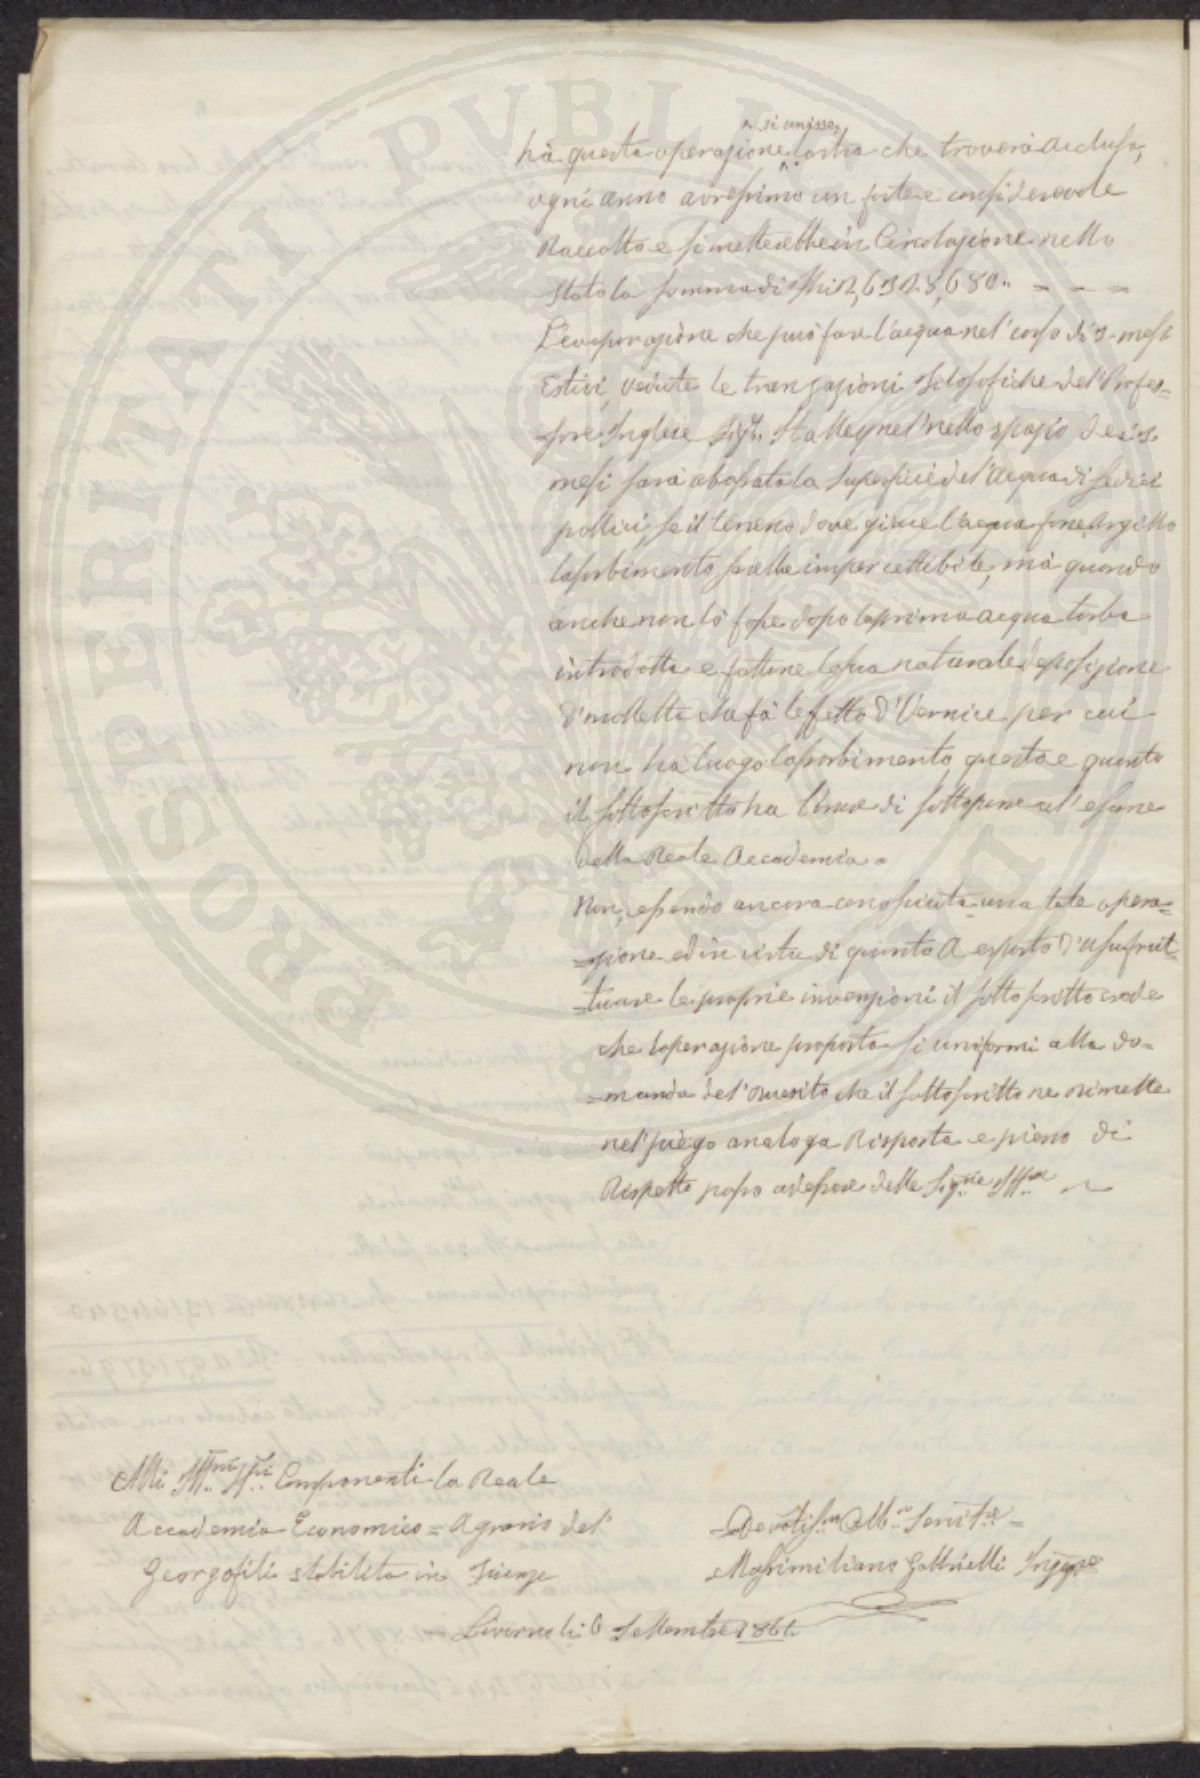 PROSPERITATI PVBLICAE
si unisse
hà questa operazione l'altra che troverà acclusa,
ogni anno avressimo un forte e considerevole
Raccolto e si metterebbe in Circolazione nello
Stato la somma di
L'evaporazione che può fare l'acqua nel' corso di 3 mesi
Estivi, vedute le tranzazioni filosofiche del' Profes=
sore Inglese Sig.r Halley nel' nello spazio dei 3
mesi sarà abassata la Superficie del' acqua di sedici
pollici, se il terreno dove giace l'acqua fosse Argillo
lasorbimento sarebbe impercettibile, mà quando
anche non lò fosse dopo la prima acqua torba
introdotta e fattone la sua naturale deposizione
d'melletta che fà l'effetto d'Vernice per cui
non ha luogo lasorbimento, questo e quanto
il sottoscritto ha l'onore di sottoporre al' esame
della Reale Accademia.
Non, essendo ancora conosciuta una tale opera=
=zione ed in vista di quanto A esposto d'usufrut=
=tuare le proprie invenzioni il sottoscritto crede
che l'operazione proposta si uniformi alla do=
=manda del' Quesito che il sottoscritto ne rimette
nel' piego analoga Risposta e pieno di
Rispetto passo ad essere delle Sig.rie Ill.me
Alli Ill.mi Sig.ri Componenti la Reale
Accademia Economico=Agraria del'
Georgofili stabilita in Firenze
Devotiss.mo Obb.mo Servit.re
Massimiliano Gabbrielli Ing.re
Livorno li 6 Settembre